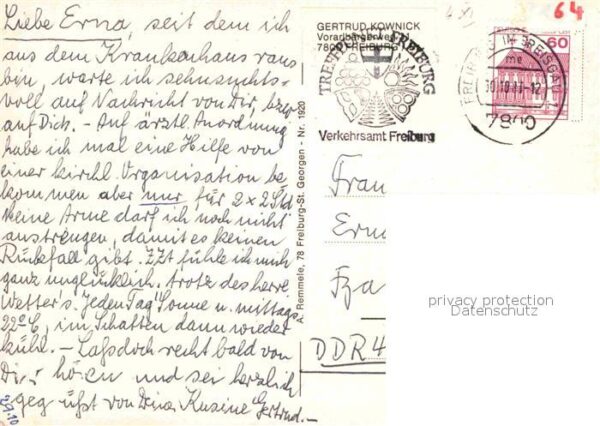 Liebe Erna, seit dem ich
aus dem Krankenhaus raus
bin, warte ich sehnsuchts-
voll auf Nachricht von Dir, bezw
auf Dich. - Auf ärztl. Anordnung
habe ich mal eine Hilfe von
einer kirchl. Organisation be
kommen aber nur für 2 x 2 Std
keine Arme darf ich noch nicht
anstrengen, damit es keinen
Rückfall gibt. ZZt fühle ich mich
ganz unglücklich. trotz des herrl
Wetter's. Jeden Tag Sonne u. mittags
22°C, im Schatten dann wieder
kühl. - Laß doch recht bald von
Dir hören und sei herzlich
gegrüßt von Deiner Kusine Gertrud. -
29.10
A. Remmele, 78 Freiburg-St. Georgen - Nr. 1920
GERTRUD KOWNICK
Vorarlbergerweg
7800 FREIBURG
TREFFPUNKT FREIBURG
Verkehrsamt Freiburg
64
60
FREIBURG IM BREISGAU
me
7800
Frau
DDR 4
privacy protection
Datenschutz